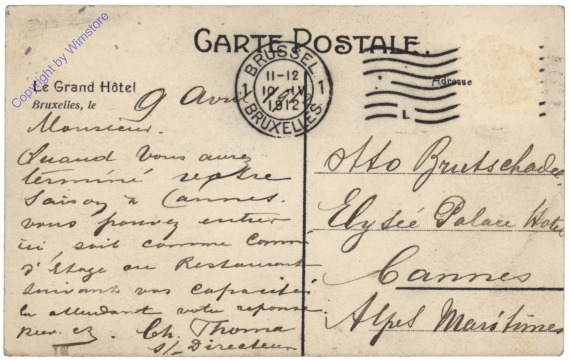 CARTE POSTALE.
Le Grand Hôtel
Bruxelles, le 9 Avril
BRUSSEL
11-12
1 10 IV 1
1912
BRUXELLES
L
Adresse
Monsieur.
Quand vous aurez
terminé votre
saison à Cannes.
vous pouvez entrer
ici soit comme Comm
d'Etage ou Restaurant
suivant vos capacités
En attendant votre réponse
Ch. Thoma
s/ Directeur
Otto
Elysée Palace Hotel
Cannes
Alpes Maritimes
Copyright by Wimstore